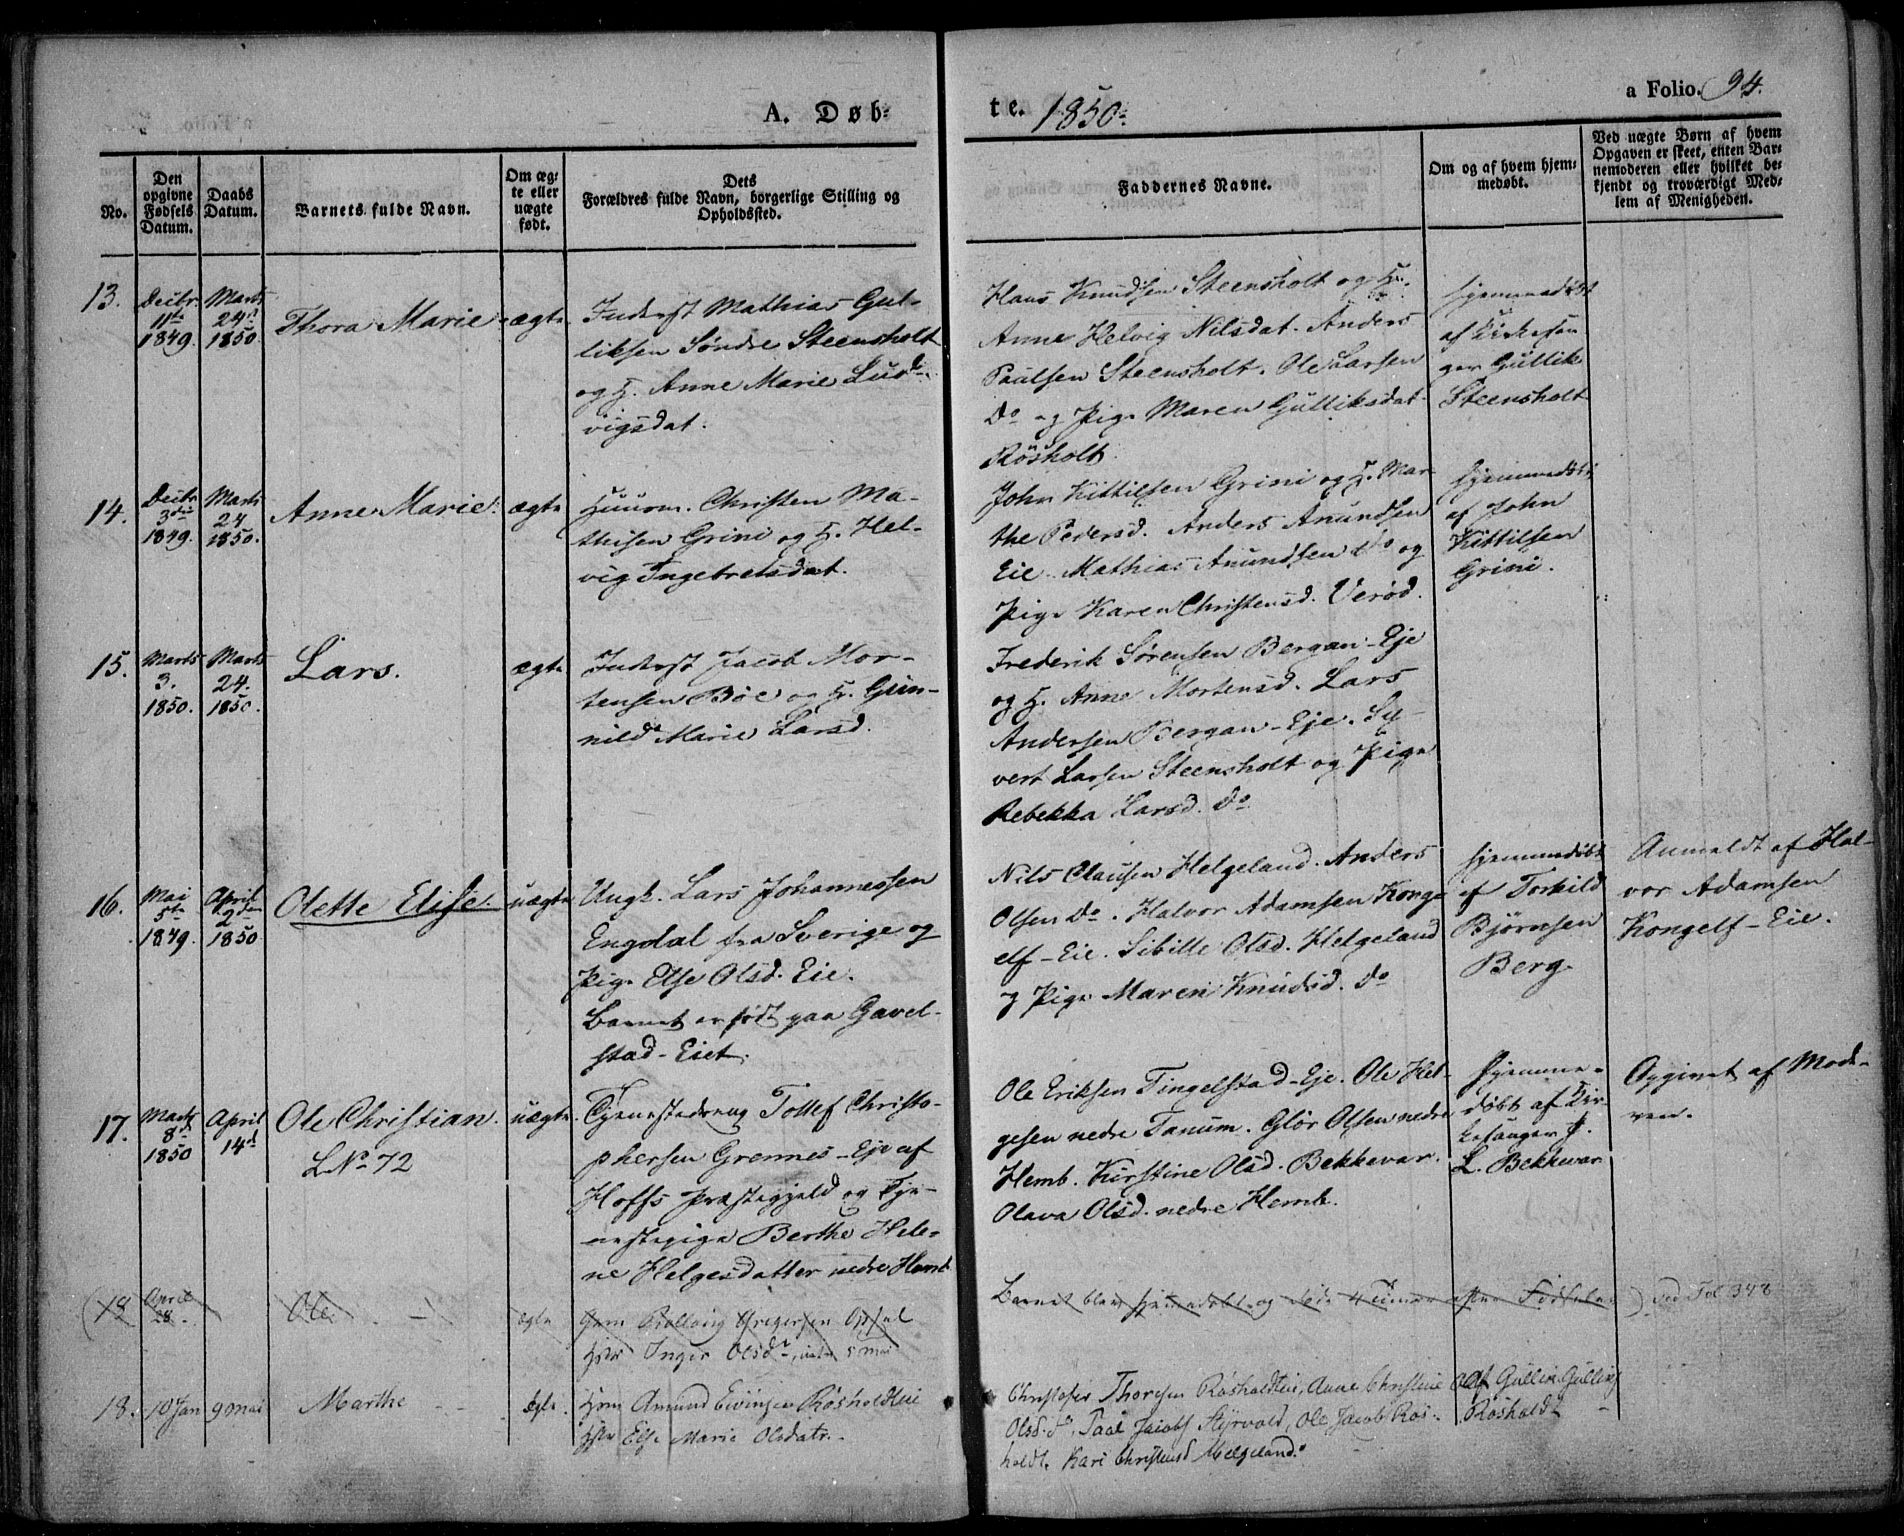 a Folio. 94.
A. Døb-
te. 1850.
No.
Den opgivne Fødsels Datum.
Daabs Datum.
Barnets fulde Navn.
Om æg- te eller uægte født.
Dets Forældres fulde Navn, borgerlige Stilling og Opholdssted.
Faddernes Navne.
Om og af hvem hjem- medøbt.
Ved uægte Børn af hvem Opgaven er skeet, enten Bar- nemoderen eller hvilket be- kjendt og troværdigt Med- lem af Menigheden.
13.
Decbr.
11te
1849.
Marts
24d
1850.
Thora Marie
ægte
Inderst Mathias Gul-
liksen Søndre Steensholt
og H. Anne Marie Lud-
vigsdat.
Hans Knudsen Steensholt og H.
Anne Helvig Nilsdat. Anders
Paulsen Steensholt. Ole Larsen
Do og Pige Maren Gulliksdat
Røsholt.
hjemmedøbt
af Kirkesan
ger Gullik
Steensholt
14.
Decbr
3die
1849.
Marts
24
1850.
Anne Marie.
ægte
Huusm. Christen Ma-
thisen Grini og H. Hel-
vig Ingebretsdat.
John Kittilsen Grini og H. Mar-
the Pedersd. Anders Anundsen
Eie. Mathias Anundsen Do og
Pige Karen Christensd. Verød.
hjemmedøbt
af John
Kittilsen
Grini.
15.
Marts
3.
1850.
Marts
24.
1850.
Lars.
ægte
Inderst Jacob Mor-
tensen Bøe og H. Gun-
nild Marie Larsd.
Frederik Sørensen Bergan-Eje
og H. Anne Mortensd. Lars
Andersen Bergan-Eje. Sy-
vert Larsen Steensholt og Pige
Rebekka Larsd. Do
16.
Mai
5te
1849.
April
2den
1850
Olette Elise.
uægte
Ungk. Lars Johannessen
Engdal fra Sverige og
Pige Else Olsd. Eie.
Barnet er født paa Gavel-
stad-Eiet.
Nils Clausen Helgeland. Anders
Olsen Do. Halvor Adamsen Konge
elf-Eie. Sibille Olsd. Helgeland
og Pige Maren Knudsd. Do
hjemmedøbt
af Torkild
Bjørnsen
Berg
Anmeldt af Hal-
vor Adamsen
Kongelf-Eie.
17.
Marts
8d
1850
April
14d
Ole Christian.
LNo 72
uægte
Tjenestedreng Tollef Christo-
phersen Grennes-Eje af
Hoffs Præstegjeld og Tje-
nestepige Berthe Hele-
ne Helgesdatter nedre Hemb
Ole Eriksen Tingelstad-Eje. Ole Hel-
gesen nedre Tanum. Glør Olsen nedre
Hemb. Kirstine Olsd. Bekkevar.
Olava Olsd. nedre Hemb.
hjemme-
døbt af Kir-
kesanger J.
L. Bekkevar
Opgivet af Mode-
ren.
(18
April
28.
Ole.
ægte
Gam Rollvig Gregersen Opsal
Hstr Inger Olsdr, 5 mai
Barnet blev hjemmedøbt og døde 4 Timer efter Fødselen) Ved Fol 348
18.
10 Jan
9 mai
Marthe
ægte
Hsm Amund Eivindsen Røsholdteie
Hstr Else Marie Olsdatr.
Christofer Thorsen Røsholdteie, Anne Christine
Olsd. Do, Paal Jacobs Styrvold, Ole Jacobs Røs-
holdt. Kari Christensd Melgeland.
Af Gullik Gulliks
Røsholdt